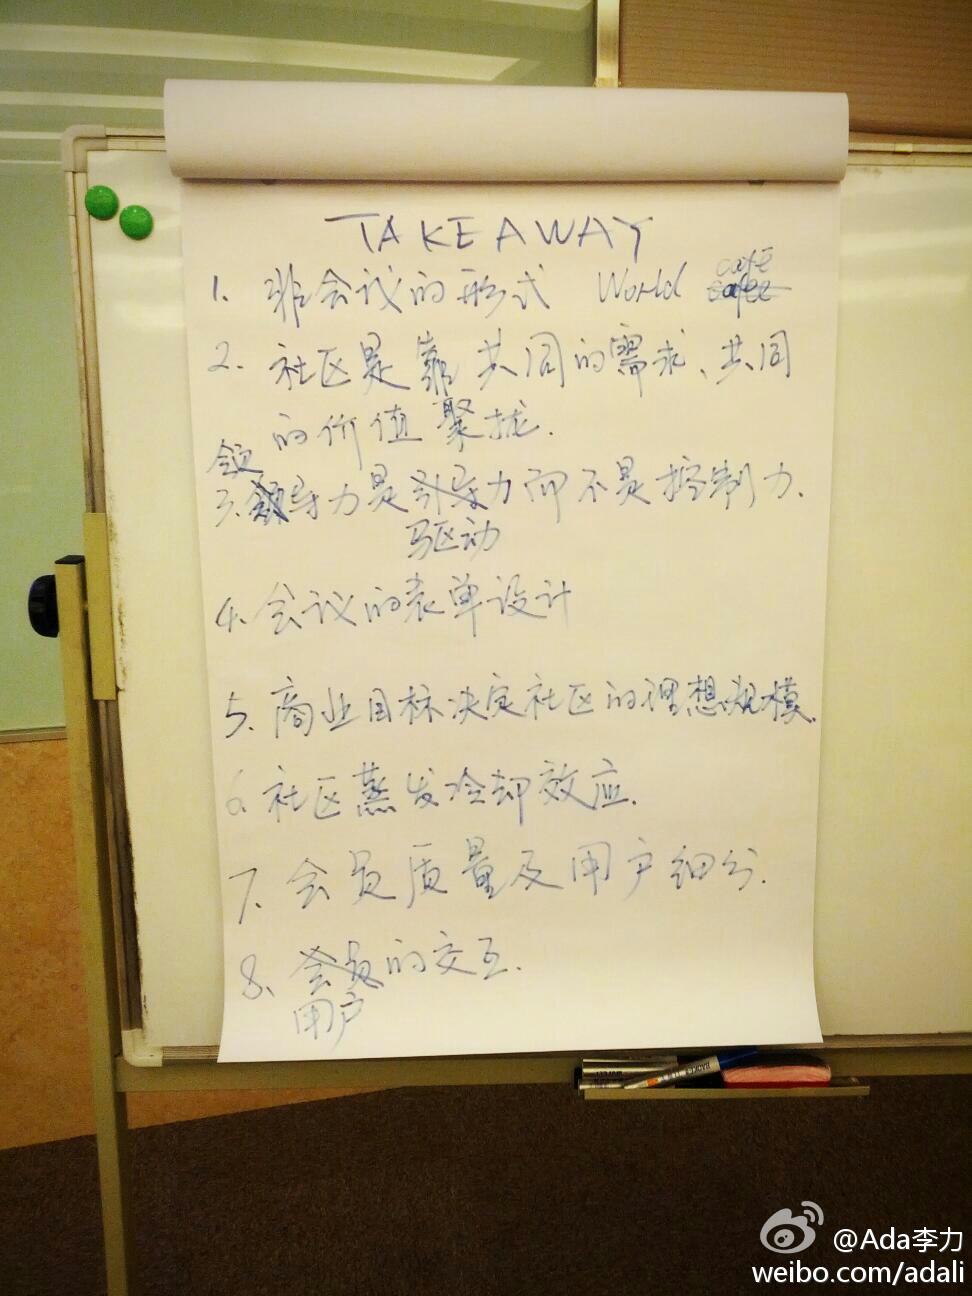 TAKEAWAY
1. 非会议的形式 World café
2. 社区是靠共同的需求、共同
的价值聚拢.
3. 领导力是驱动力而不是控制力.
4. 会议的表单设计
5. 商业目标决定社区的理想规模.
6. 社区蒸发冷却效应.
7. 会员质量及用户细分.
8. 用户的交互.
@Ada李力
weibo.com/adali